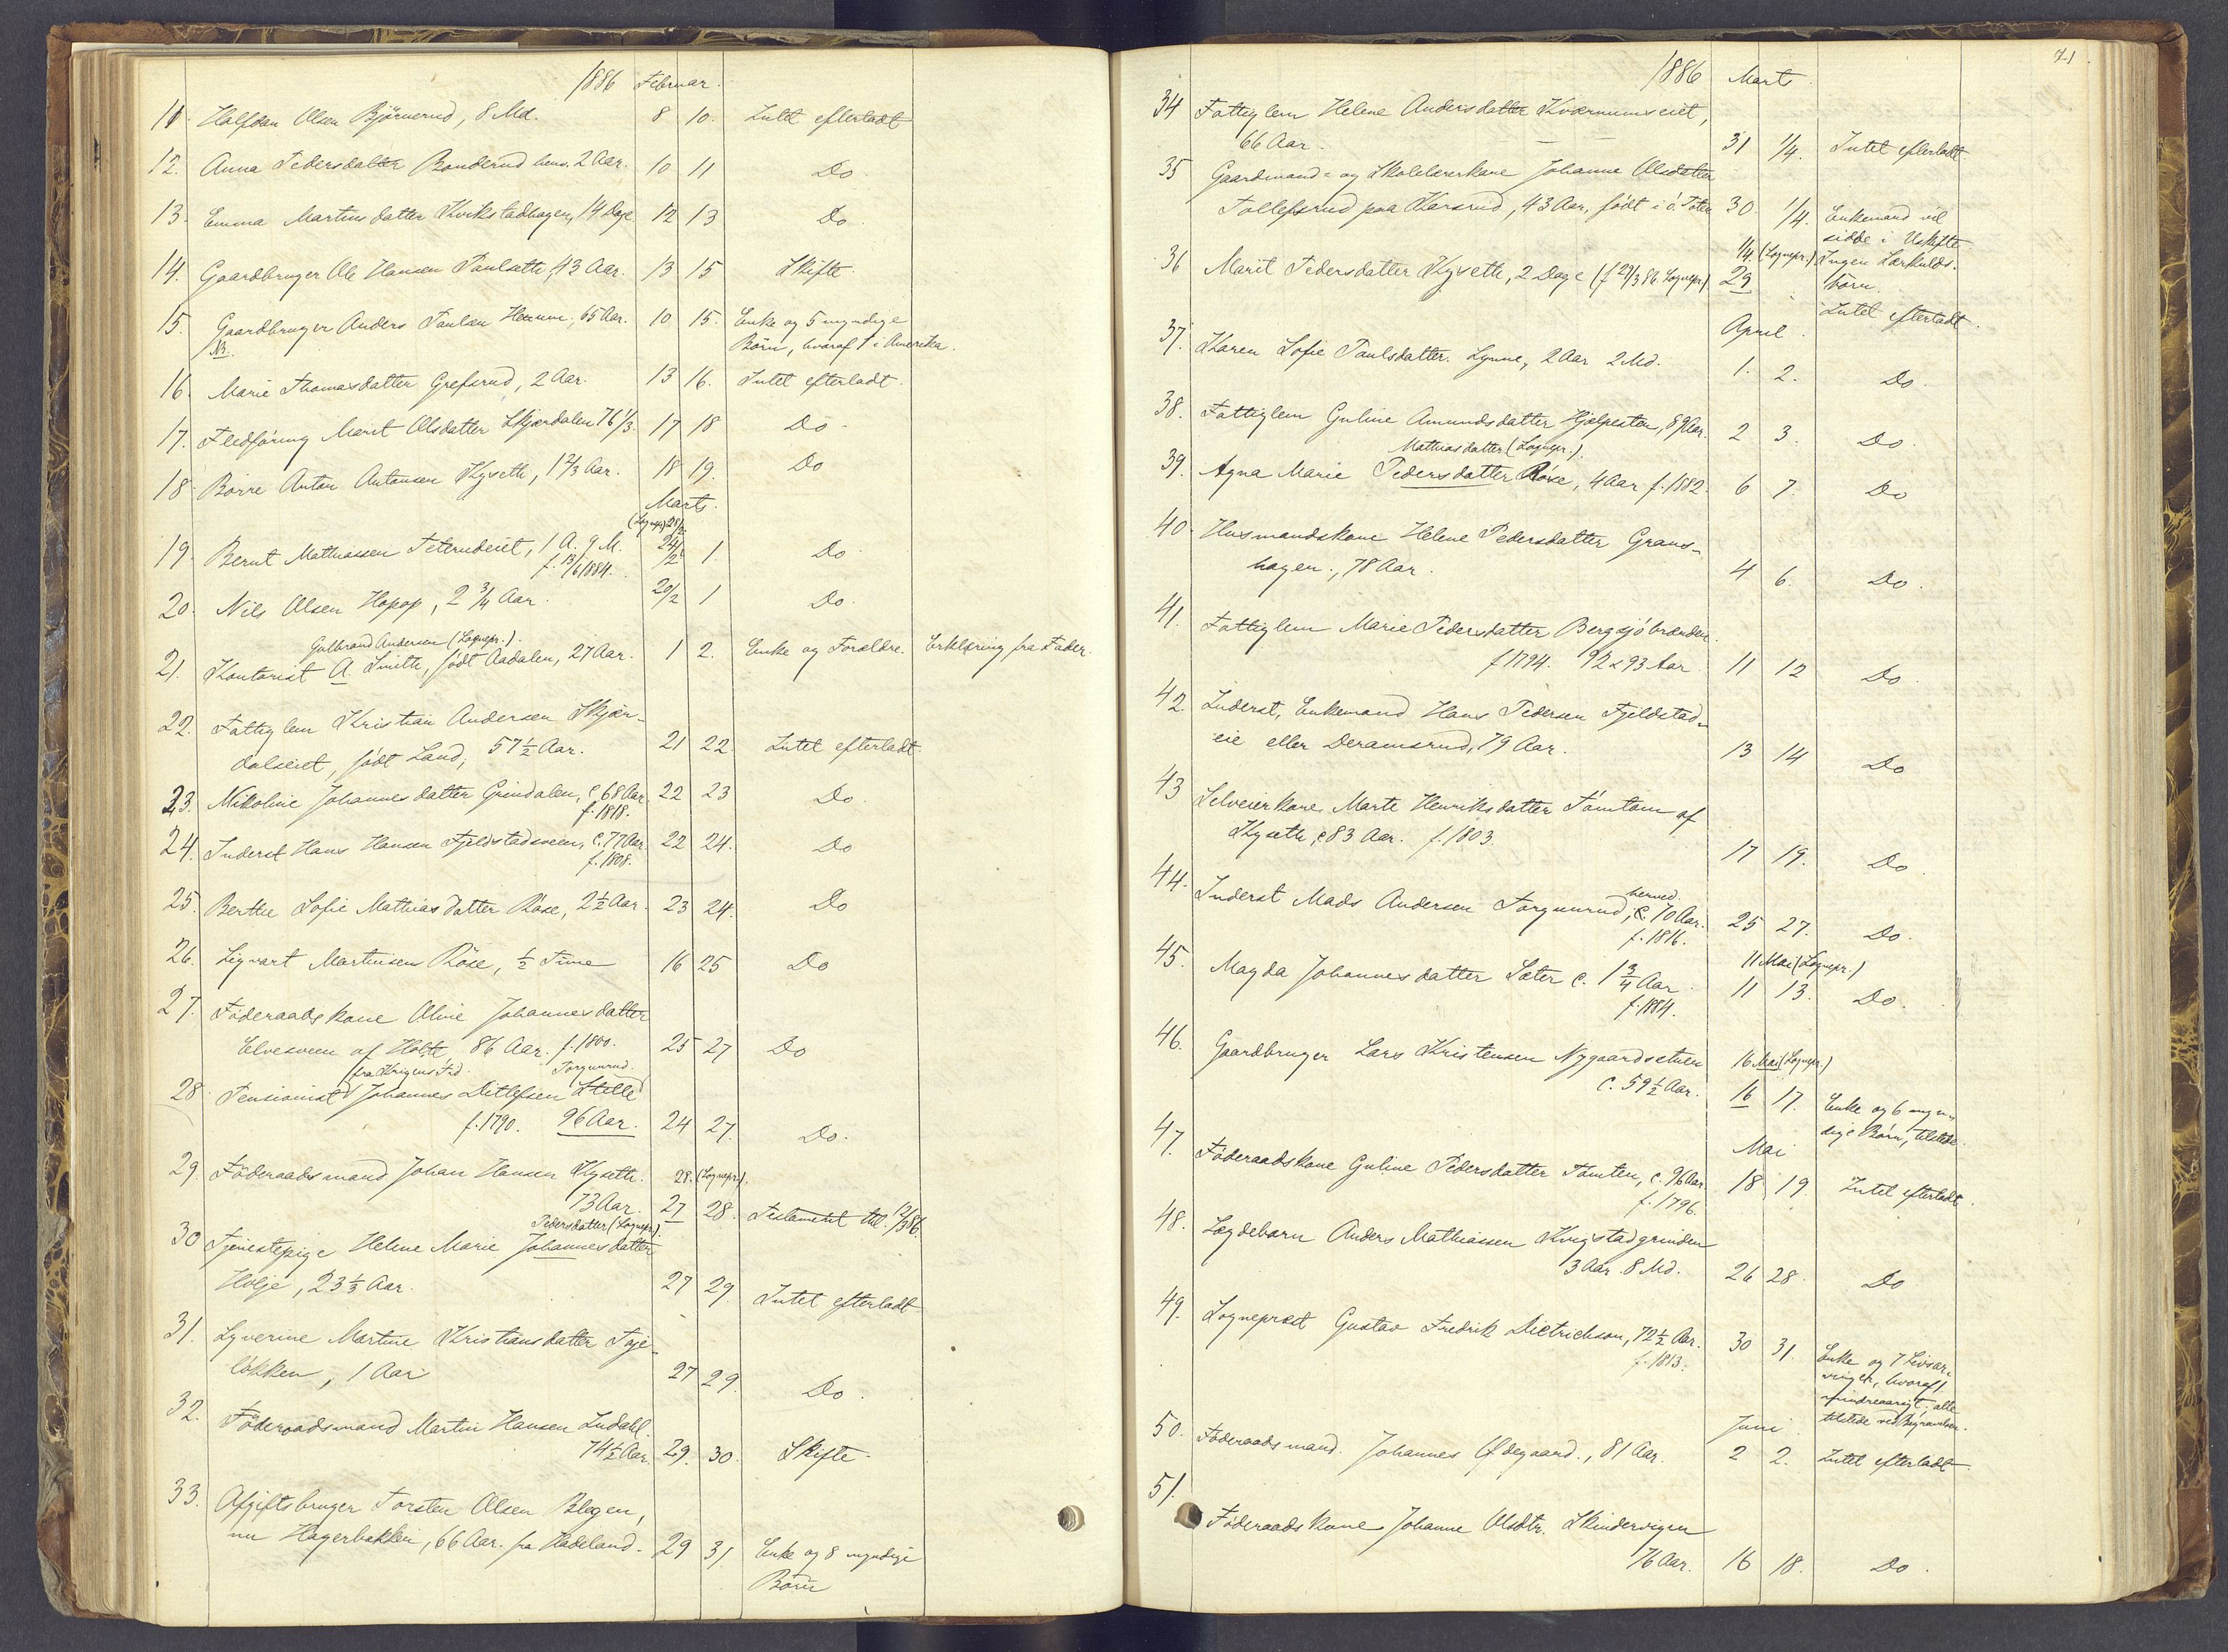 1886 Februar.
11. Halfdan Olsen Bjørnerud, 8 Md. 8 10. Intet efterladt
12. Anna Pedersdatter Bonderud hens. 2 Aar. 10 11 Do
13. Emma Martinsdatter Kvikstadhagen, 14 Dage 12 13 Do
14. Gaardbruger Ole Hansen Paulsæth, 43 Aar. 13 15 Skifte
15. Gaardbruger Anders Paulsen, 65 Aar. 10 15. Enke og 5 myndige
NB. Børn, hvoraf 1 i Amerika.
16. Marie Thomasdatter Grefsrud, 2 Aar. 13 16. Intet efterladt.
17. Marit Olsdatter Skjærdalen 76 1/3. 17 18 Do
18. Børre Anton Antonsen Kyseth, 1 2/3 Aar. 18 19. Do
Marts.
(Sognepr.) 28/2.
19. Bernt Mathiassen Teterudeiet, 1 A. 9 M. 24/2 1. Do
f. 13/6 1884.
20. Nils Olsen Hopop, 2 3/4 Aar. 20/2 1 Do.
Gulbrand Andersen (Sognepr.).
21. Kontorist A. Smith, født Aadalen, 27 Aar. 1 2. Enke og Forældre. Erklæring fra Fader.
22. Fattiglem Kristian Andersen Skjær-
dalseiet, født Land, 57 1/2 Aar. 21 22. Intet efterladt.
23. Nikoline Johannesdatter Grindalen, c. 68 Aar. 22 23 Do.
f. 1818.
24. Inderst Hans Hansen Fjeldstadsveen, c. 77 Aar. 22 24. Do
f. 1808.
25. Berthe Sofie Mathiasdatter Røse, 2 1/2 Aar. 23 24. Do
26. Sigvart Martinsen Røse, 1/2 Time 16 25 Do
27. Føderaadskone Oline Johannesdatter
Elvesveen af Holte, 86 Aar. f. 1800. 25 27 Do
fra Krigens Tid. Torgunrud.
28. Pensionist Johannes Ditlefsen Stille
f. 1790. 96 Aar. 24 27. Do.
29. Føderaadsmand Johan Hansen Kyseth. 28. (Sognepr.).
73 Aar. 27 28. Testament 12/3 86.
Pedersdatter (Sognepr.)
30 Tjenestepige Helene Marie Johannesdatter
Holje, 23 1/3 Aar. 27 29. Intet efterladt
31. Syverine Martine Kristiansdatter Teje-
løkken, 1 Aar 27 29. Do.
32. Føderaadsmand Martin Hansen Indahl.
74 1/2 Aar. 29. 30. Skifte.
33. Afgiftsbruger Torsten Olsen Blegen,
nu Hagerbakken, 66 Aar. fra Hadeland. 29 31. Enke og 8 myndige
Børn
71
1886 Marts
34 Fattiglem Helene Andersdatter Kværnumseiet,
66 Aar. 31 1/4. Intet efterladt
35 Gaardmands- og Skolelærerkone Johanne Olsdatter
Tollefsrud paa Karsrud, 43 Aar, født i ø. Toten 30. 1/4. Enkemand vil
sidde i Uskifte
1/4 (Sognepr.) Ingen Særkulds-
36 Marit Pedersdatter Kyseth, 2 Dage (f 27/3 86. Sognepr.) 29 børn.
Intet efterladt.
April.
37. Karen Sofie Paulsdatter Lynne, 2 Aar 2 Md. 1. 2. Do.
38. Fattiglem Guline Amundsdatter Hjelpesten, 89 Aar. 2 3. Do.
Mathiasdatter (Sognepr.).
39. Agna Marie Pedersdatter Røse, 4 Aar f. 1882. 6 7. Do
40. Husmandskone Helene Pedersdatter Grans-
hagen., 78 Aar. 4 6. Do.
41. Fattiglem Marie Pedersdatter Bergsjøbraaden.
f. 1794. 92 a 93 Aar. 11 12 Do.
42. Inderst, Enkemand Hans Pedersen Fjeldstad-
eie eller Deramsrud, 79 Aar. 13 14 Do
43 Selveierkone Marte Henriksdatter Tømtom af
Kyseth, c 83 Aar. f. 1803. 17 19. Do.
herved.
44. Inderst Mads Andersen Torgunrud, c. 70 Aar. 25 27. Do.
f. 1816.
11 Mai (Sognepr.)
45. Magda Johannesdatter Sæter c. 1 3/4 Aar. 11 13. Do.
f. 1884.
46. Gaardbruger Lars Kristensen Nygaardsstuen 16 Mai (Sognepr.)
c. 59 1/2 Aar. 16 17. Enke og 6 myn-
dige Børn, tilstede.
Mai
47. Føderaadskone Guline Pedersdatter Tomten, c. 96 Aar. 18 19. Intet efterladt.
f. 1796.
48. Lægdebarn Anders Mathiassen Kvigstadgrinden
3 Aar. 8 Md. 26 28. Do
49. Sogneprest Gustav Fredrik Dietrichson, 72 1/2 Aar. 30 31. Enke og 7 Livsar-
f. 1813. vinger, hvoraf 1
mindreaarig; alle
tilstede ved Begravelsen.
Juni
50. Føderaadsmand. Johannes Ødegaard., 81 Aar. 2 2. Intet efterladt.
51. Føderaadskone Johanne Olsdtr. Skindervigen
76 Aar. 16 18. Do.